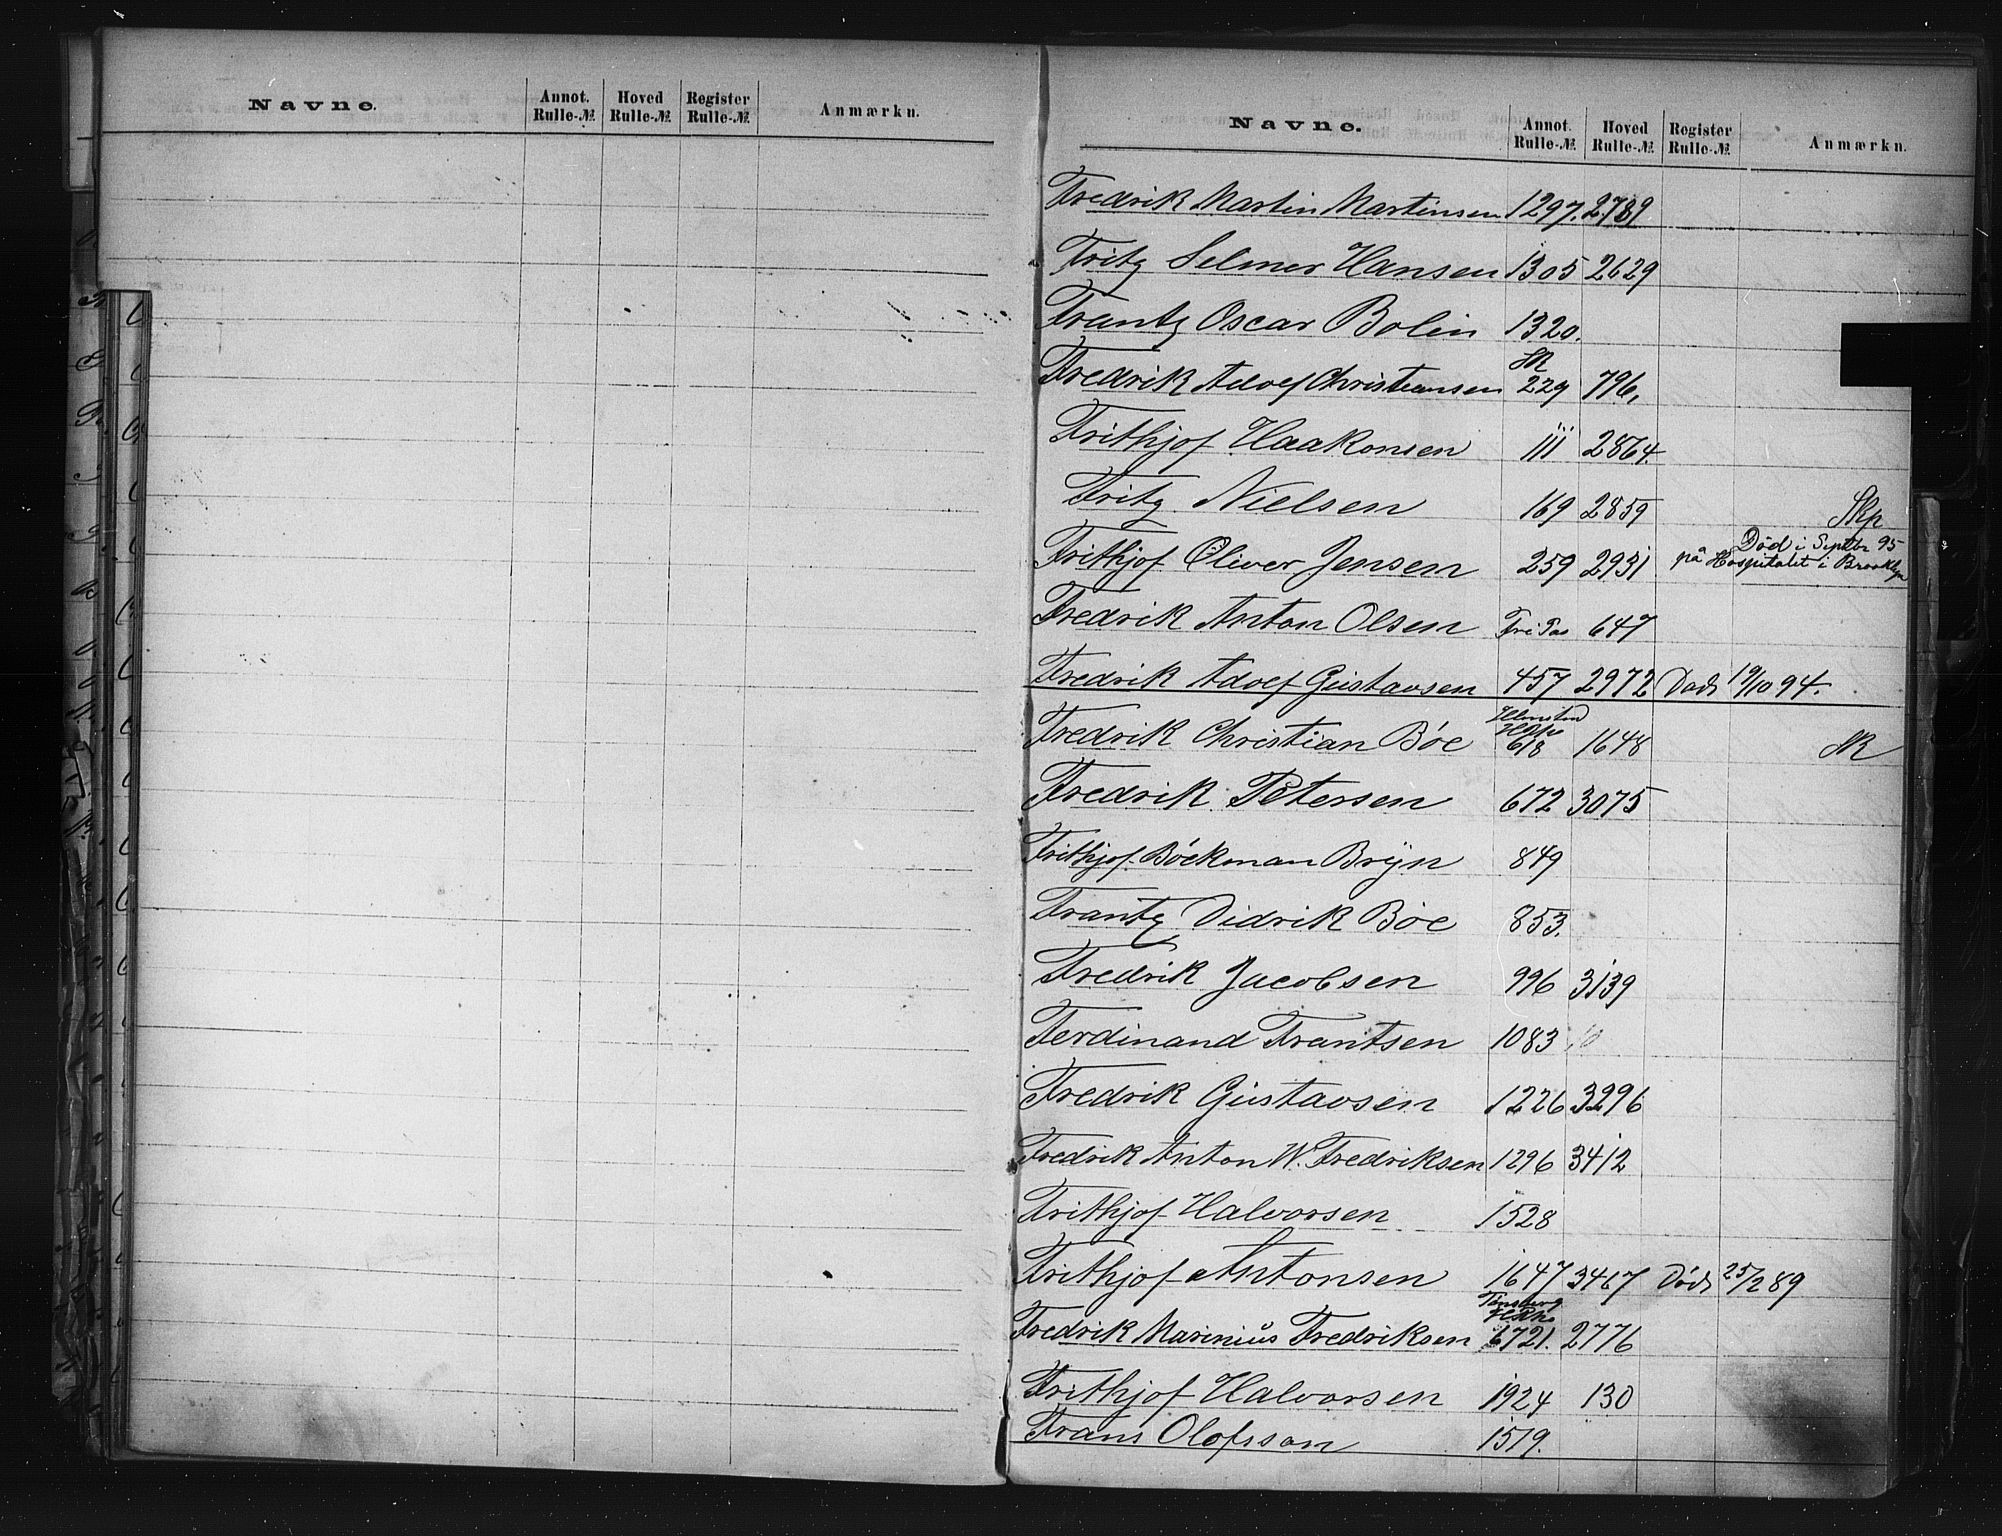 Navne. Annot. Rulle-№. Hoved Rulle-№. Register Rulle-№. Anmærkn.
Navne. Annot. Rulle-№. Hoved Rulle-№. Register Rulle-№. Anmærkn.
Fredrik Martin Martinsen 1297. 2789
Fritz Selmer Hansen 1305 2629
Frantz Oscar Bolin 1320.
Fredrik Adolf Christiansen 229 796,
Frithjof Haakonsen 111 2864.
Fritz Nielsen 169 2859 Skp
Frithjof Oliver Jensen 259 2931 Død i Septbr 95
på Hospitalet i Brooklyn
Fredrik Anton Olsen Fri Pas 647
Fredrik Adolf Gustavsen 457 2972 Død 19/10 94.
Fredrik Christian Böe 618 1648
Fredrik Petersen 672 3075
Frithjof Böckman Bryn 849
Frantz Didrik Böe 853.
Fredrik Jacobsen 996 3139
Ferdinand Frantsen 1083
Fredrik Gustavsen 1226 3296
Fredrik Anton W. Fredriksen 1296 3412
Frithjof Halvorsen 1528
Frithjof Antonsen 1647 3467 Död 25/2 89
Tønsberg
Fredrik Marinius Fredriksen 6721. 2776
Frithjof Halvorsen 1924 130
Frans Olofsson 1519.